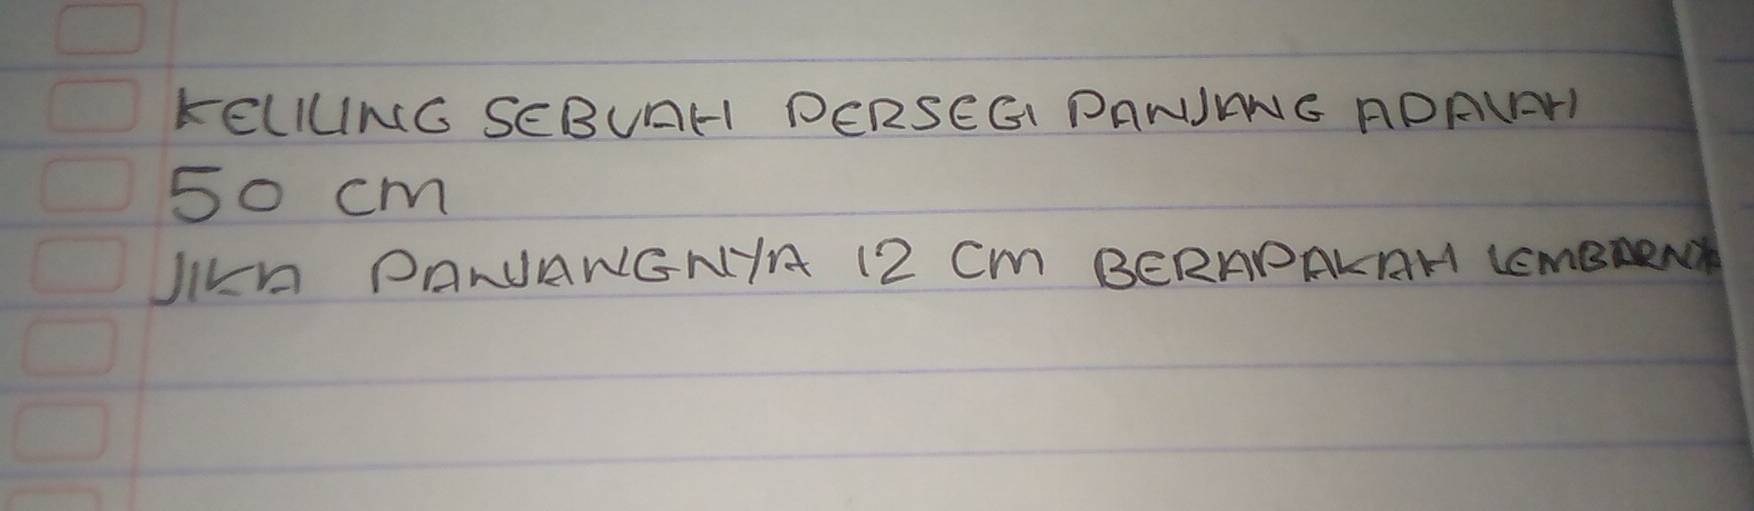 KELILING SEBUAH PERSEGI PANJANG ADALAH
50 cm
JIKA PANJANGNYA 12 cm BERAPAKAH LEMBARNYA